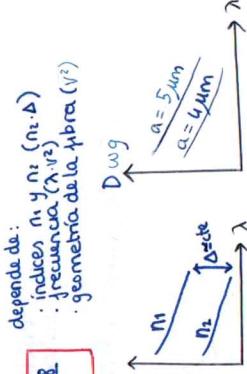 depende de:
· índices n₁ y n₂ (n₂·Δ)
· frecuencia (λ·V²)
· geometría de la fibra (V²)
n₁
n₂
Δ=cte
λ
Dwg
a = 5 μm
a = 4 μm
λ